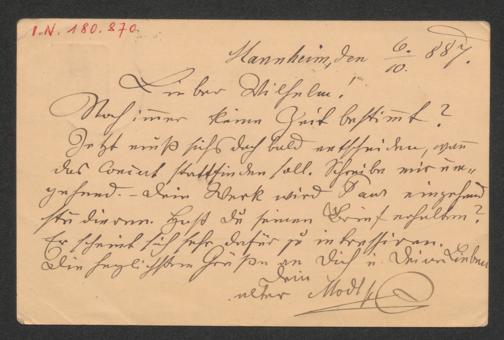 I.N. 180.870.
Mannheim, den 6./10. 887.
Lieber Wilhelm!
Noch immer keine Zeit bestimmt?
Jetzt muß sichs doch bald entscheiden, wann
das Concert stattfinden soll. Schreibe mir um-
gehend. – Dein Werk wird Paur eingehend
studieren. Hast du seinen Brief erhalten?
Er scheint sich sehr dafür zu intressiren.
Die herzlichsten Grüße an Dich u. Deine Lieben
Dein
alter Modl